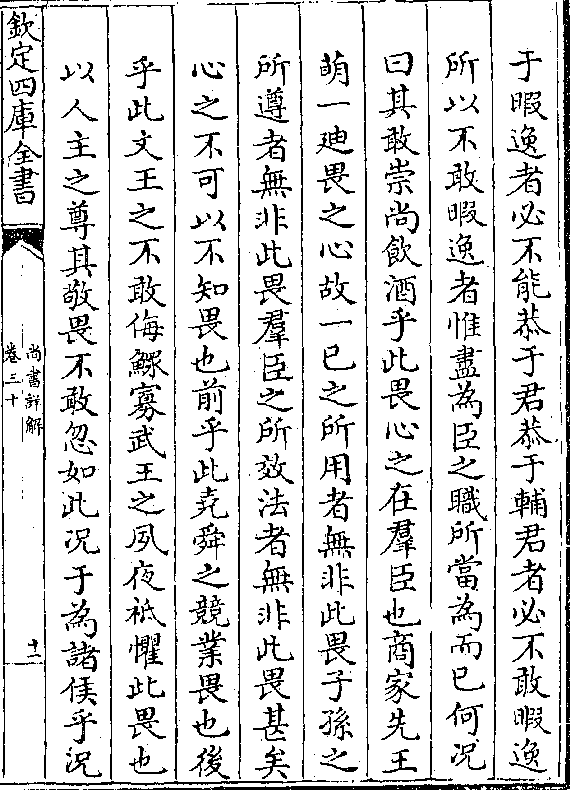 于暇逸者必不能恭于君恭于輔君者必不敢暇逸
所以不敢暇逸者惟盡為臣之職所當為而已何况
曰其敢崇尚飲酒乎此畏心之在羣臣也商家先王
萌一廸畏之心故一已之所用者無非此畏子孫之
所遵者無非此畏羣臣之所效法者無非此畏甚矣
心之不可以不知畏也前乎此堯舜之競業畏也後
乎此文王之不敢侮鰥寡武王之夙夜祗懼此畏也
以人主之尊其敬畏不敢忽如此况于為諸侯乎况
欽定四庫全書
尚書詳解
卷三十
十一